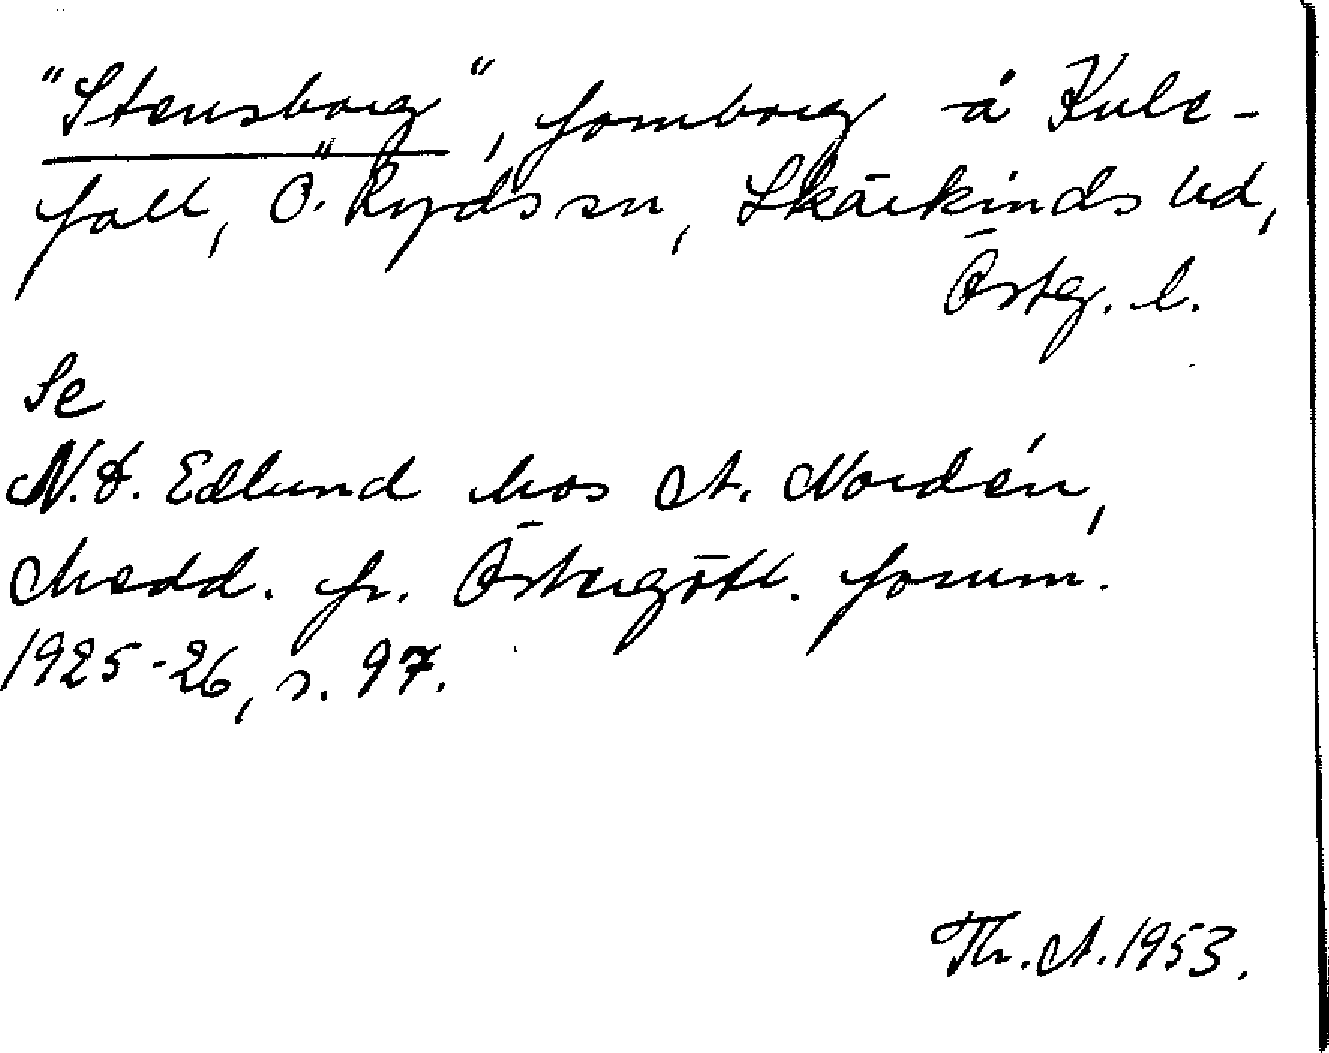 "Stensborg", fornborg å Kule-
fall, Ö. Ryds sn, Skärkinds hd,
Östg. l.
Se
N. D. Edlund hos A. Nordén,
Medd. fr. Östergötl. fornm.
1925-26, s. 97.
Th. A. 1953.